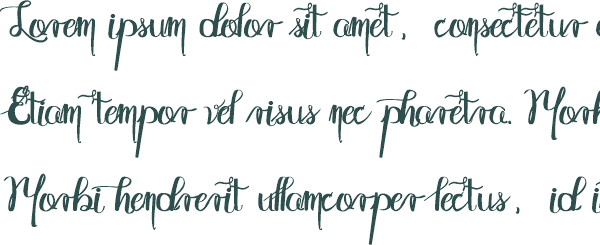 Lorem ipsum dolor sit amet, consectetur
Etiam tempor vel risus nec pharetra. Morb
Morbi hendrerit ullamcorper lectus, id